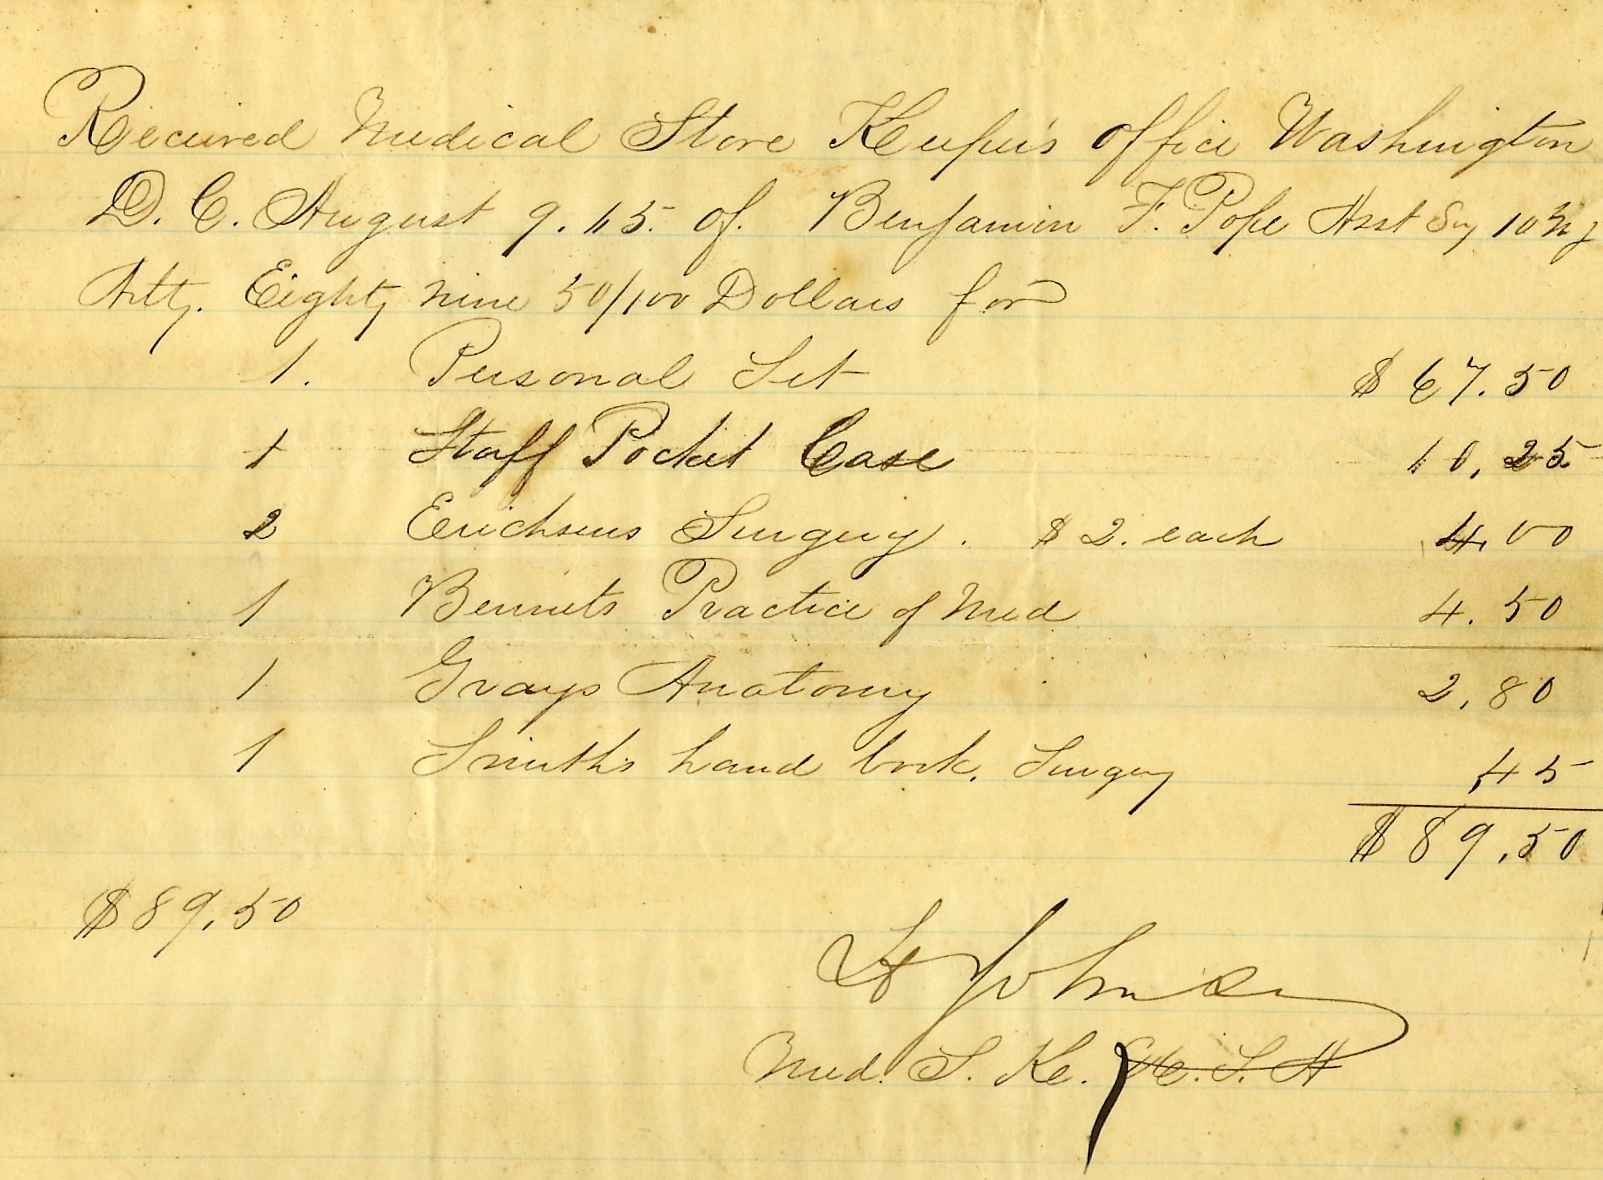 Received Medical Store Keeper's office Washington
D. C. August 9. 65. of. Benjamin F. Pope Asst Surg 10th N Y
Arty. Eighty nine 50/100 Dollars for
1. Personal Set $ 67.50
1 Staff Pocket Case 10,25
2 Erichsens Surgery. $ 2. each 4,00
1 Bennets Practice of Med 4.50
1 Grays Anatomy 2,80
1 Smith's hand book. Surgery ,45
$ 89,50
$ 89,50
H Johnson
Med. S. K. U.S.A